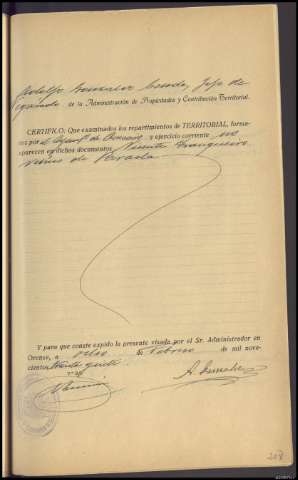 Adolfo González Conde, Jefe de
Negociado de la Administración de Propiedades y Contribución Territorial.
CERTIFICO: Que examinados los repartimientos de TERRITORIAL, forma-
dos por el Ayunt. de y ejercicio corriente no
aparecen en dichos documentos Vicente
vecino de
Y para que conste expido la presente visada por el Sr. Administrador en
Orense, a ocho de Febrero de mil nove-
cientos treinta y
V.º B.º
A. González
208